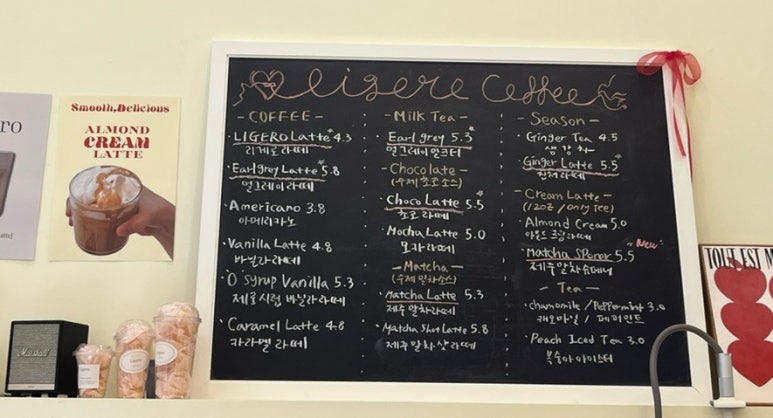 ro
atte]
Smooth, Delicious
ALMOND
CREAM
LATTE
Marshall
ligere Coffee
- COFFEE -
LIGERO Latte* 4.3
리제로라떼
Earl grey Latte* 5.8
얼그레이라떼
Americano 3.8
아메리카노
Vanilla Latte 4.8
바닐라라떼
0 syrup Vanilla 5.3
제로시럽 바닐라라떼
Caramel Latte 4.8
카라멜 라떼
- Milk Tea -
Earl grey 5.3*
얼그레이밀크티
- Chocolate -
(수제 초코소스)
Choco Latte 5.5*
초코라떼
Mocha Latte 5.0
모카라떼
- Matcha -
(수제 말차소스)
Matcha Latte 5.3
제주 말차라떼
Matcha Shot Latte 5.8
제주말차 샷라떼
- Season -
Ginger Tea 4.5
생강차
Ginger Latte 5.5*
진저라떼
- Cream Latte -
(12oz / only Ice)
Almond Cream 5.0
아몬드 크림라떼
"New"
5.5
- Tea -
chamomile / Peppermint 3.0
캐모마일 / 페퍼민트
Peach Iced Tea 3.0
복숭아 아이스티
TOUT EST M